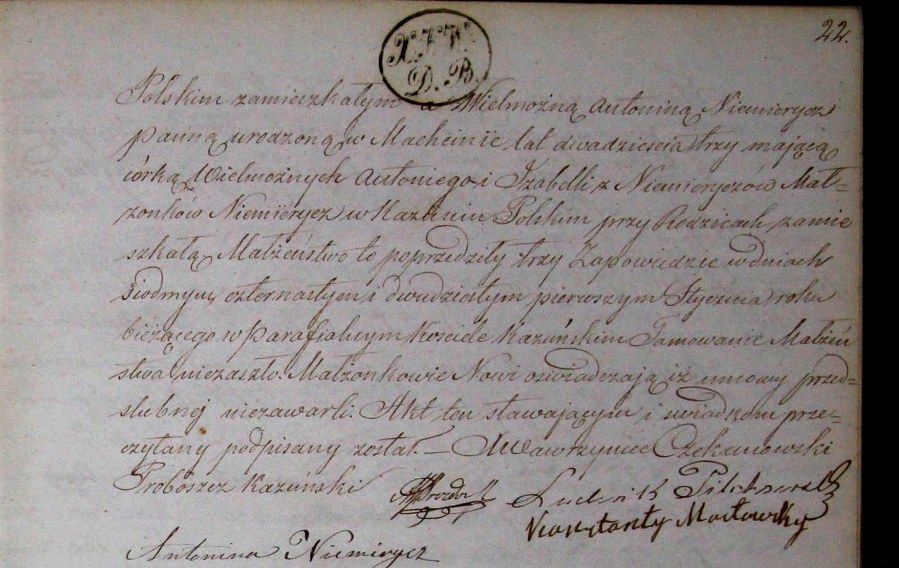 22.
D. B.
Polskim zamieszkałym a Wielmożną Antoniną Niemierycz
panną urodzoną w Macheinie lat dwadzieścia trzy mającą
córką Wielmożnych Antoniego i Izabelli z Niemieryczów Mał-
żonków Niemierycz w Kazuniu Polskim przy Rodzicach zamie
szkałą, Małżeństwo to poprzedziły trzy Zapowiedzie w dniach
siodmym, czternastym i dwudziestym pierwszym Stycznia roku
bieżącego w parafialnym Kosciele Kazuńskim Tamowanie Małżeń
stwa niezaszło. Małżonkowie Nowi oswiadczają iż umowy przed-
slubnej niezawarli. Akt ten stawającym i swiadkom prze-
czytany podpisany został. — X Wawrzyniec Czekanowski
Proboszcz Kazuński
Ludwik
Konstanty
Antonina Niemirycz